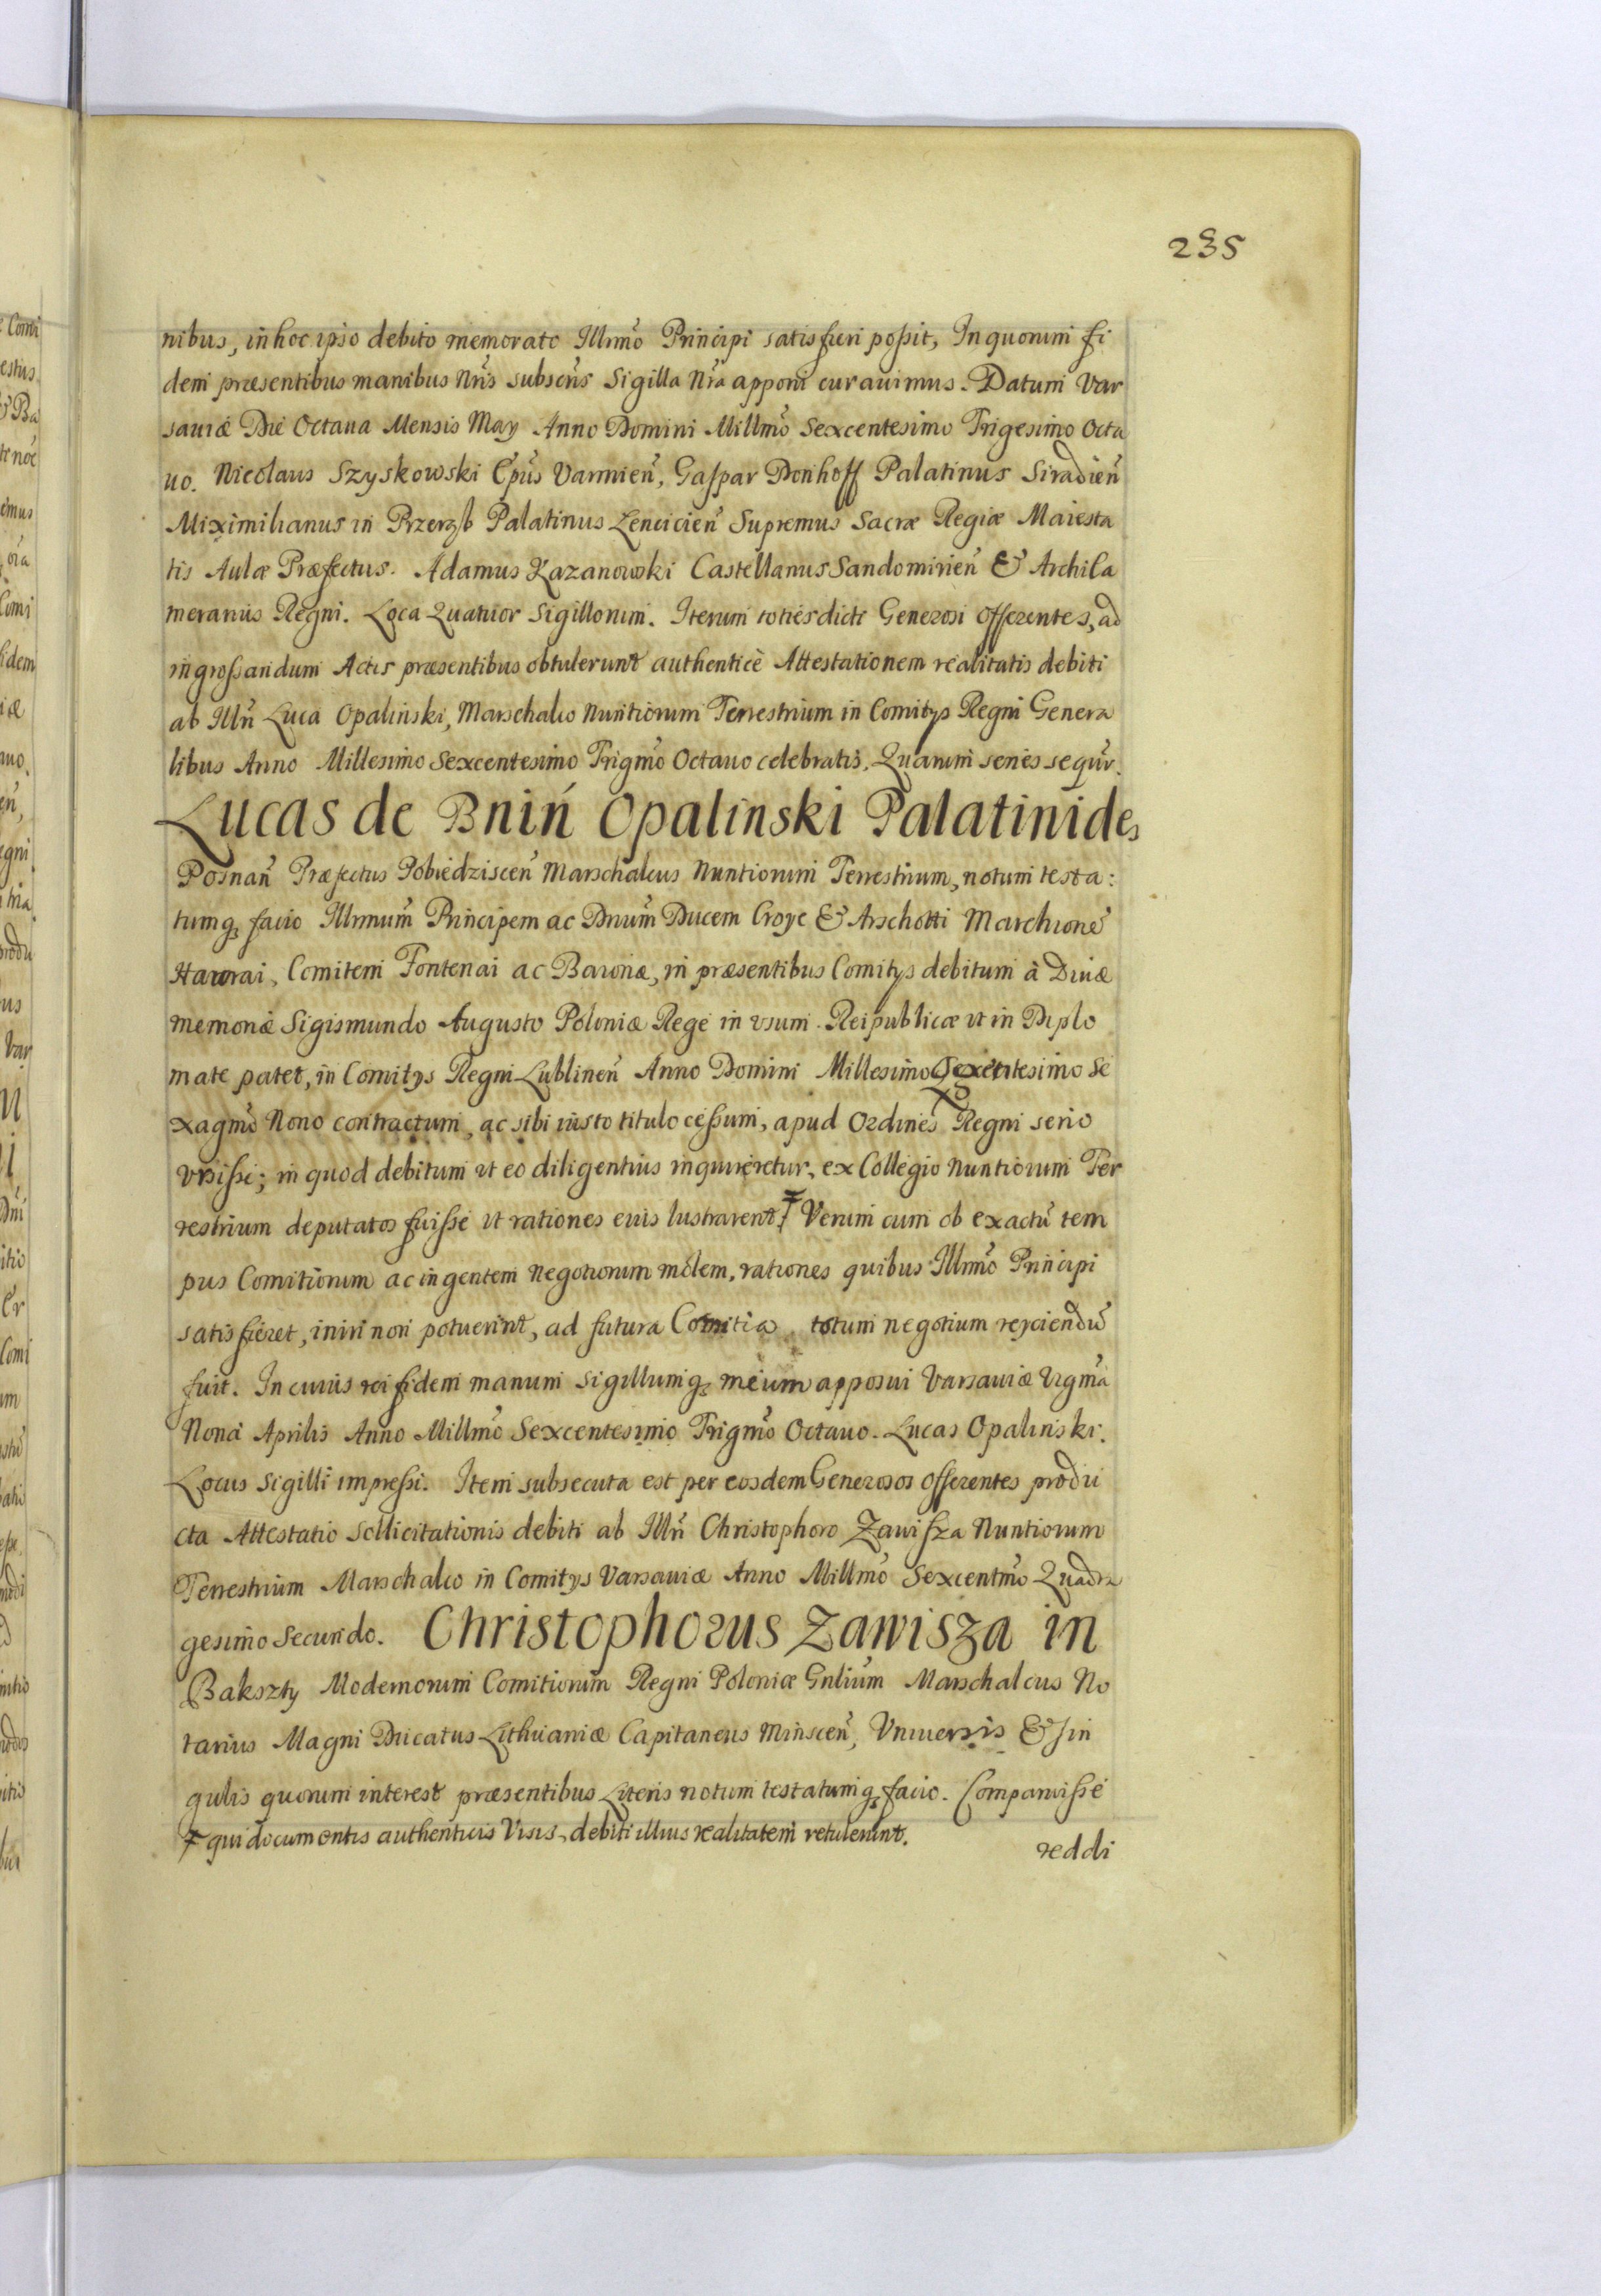 235
nibus, in hoc ipso debito memorato Illmō Principi satisfieri poßit, In quorum fi
dem præsentibus manibus Nrīs subscr̄s Sigilla Nrā apponi curauimus. Datum Var
sauiæ Die Octaua Mensis May Anno Domini Millmō Sexcentesimo Trigesimo Octa
uo. Nicolaus Szyskowski Epūs Varmien̄, Gaspar Donhoff Palatinus Siradien̄
Miximilianus in Przerąb Palatinus Lencicien̄ Supremus Sacræ Regiæ Maiesta
tis Aulæ Præfectus. Adamus Kazanowski Castellanus Sandomirien̄ & Archica
merarius Regni. Loca Quatuor Sigillorum. Iterum toties dicti Generosi Offerentes, ad
ingroßandum Actis præsentibus obtulerunt authenticè Attestationem realitatis debiti
ab Illn̄ Luca Opaliński, Marschalco Nuntiorum Terrestrium in Comitys Regni Genera
libus Anno Millesimo Sexcentesimo Trigmō Octauo celebratis, Quarum series sequr̄.
Lucas de Bniń Opalinski Palatinides
Posnan̄ Præfectus Pobiedziscen̄ Marschalcus Nuntiorum Terrestrium, notum testa:
tumqȝ facio Illmum̄ Principem ac Dnum̄ Ducem Croye & Arschotti Marchione̅
Hawrai, Comitem Fontenai ac Baronæ, in præsentibus Comitys debitum à Diuæ
memoriæ Sigismundo Augusto Poloniæ Rege in vsum Reipublicæ vt in Diplo
mate patet, in Comitys Regni Lublinen̄ Anno Domini Millesimo Qexentesimo Se
xagmō Nono contractum, ac sibi iusto titulo ceßum, apud Ordines Regni serio
vrsiße; in quod debitum vt eo diligentius inquireretur, ex Collegio Nuntiorum Ter
restrium deputatos fuiße vt rationes euis lustrarent, ⌿ Verum cum ob exactū tem
pus Comitiorum ac ingentem Negotiorum molem, rationes quibus Illmō Principi
satisfieret, iniri non potuerint, ad futura Comitia totum negotium reyciendū
fuit. In cuius rei fidem manum sigillumqȝ meum apposui Varsauiæ Vigmā
Nona Aprilis Anno Millmō Sexcentesimo Trigmō Octauo. Lucas Opaliński.
Locus Sigilli impreßi. Item subsecuta est per eosdem Generosos Offerentes produ
cta Attestatio Sollicitationis debiti ab Illn̄ Christophoro Zawisza Nuntiorum
Terrestrium Marschalco in Comitys Varsauiæ Anno Millmō Sexcentmō Quadra
gesimo Secundo. Christophorus Zawisza in
Bakszty Modernorum Comitiorum Regni Poloniæ Gnlium̄ Marschalcus No
tarius Magni Ducatus Lithuaniæ Capitaneus Minscen̄, Vniuersis & sin
gulis quorum interest præsentibus Literis notum testatumqȝ facio. Comparuiße
⌿ qui documentis authenticis Visis, debiti illius realitatem retulerunt.
reddi